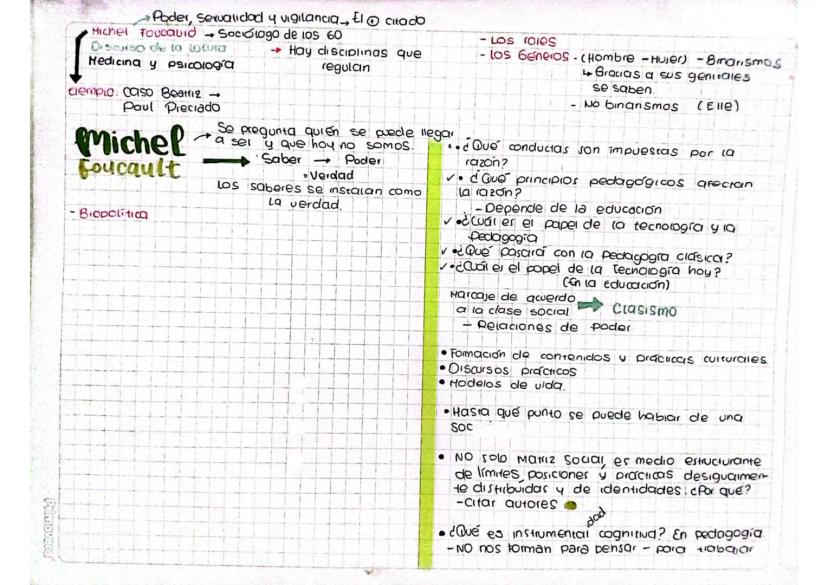 Poder, sexualidad y vigilancia → El ⊕ citado
Michel Foucauld → Sociólogo de los 60
Discurso de la locura
Medicina y psicología
→ Hay disciplinas que
regulan
Ejemplo: Caso Beatriz →
Paul Preciado
- Los roles
- Los Géneros - (Hombre - Mujer) - Binarismos
↳ Gracias a sus genitales
se saben.
- No binarismos (Elle)
Michel
Foucault
→ Se pregunta quién se puede llegar
a ser y que hoy no somos.
→ Saber → Poder
• Verdad
Los saberes se instalan como
la verdad.
- Biopolítica
• ¿Qué conductas son impuestas por la
razón?
✓ • ¿Qué principios pedagógicos afectan
la razón?
- Depende de la educación
✓ • ¿Cuál es el papel de la tecnología y la
pedagogía
✓ • ¿Qué pasará con la pedagogía clásica?
✓ • ¿Cuál es el papel de la tecnología hoy?
(En la educación)
Marcaje de acuerdo
a la clase social → Clasismo
- Relaciones de poder
• Formación de contenidos y prácticas culturales
• Discursos prácticos
• Modelos de vida.
• Hasta qué punto se puede hablar de una
soc
• NO solo Matriz Social, es medio estructurante
de límites, posiciones y prácticas desigualmen-
te distribuidas y de identidades: ¿Por qué?
- Citar autores
• ¿Qué es instrumentalidad cognitiva? En pedagogía
- NO nos forman para pensar - para trabajar